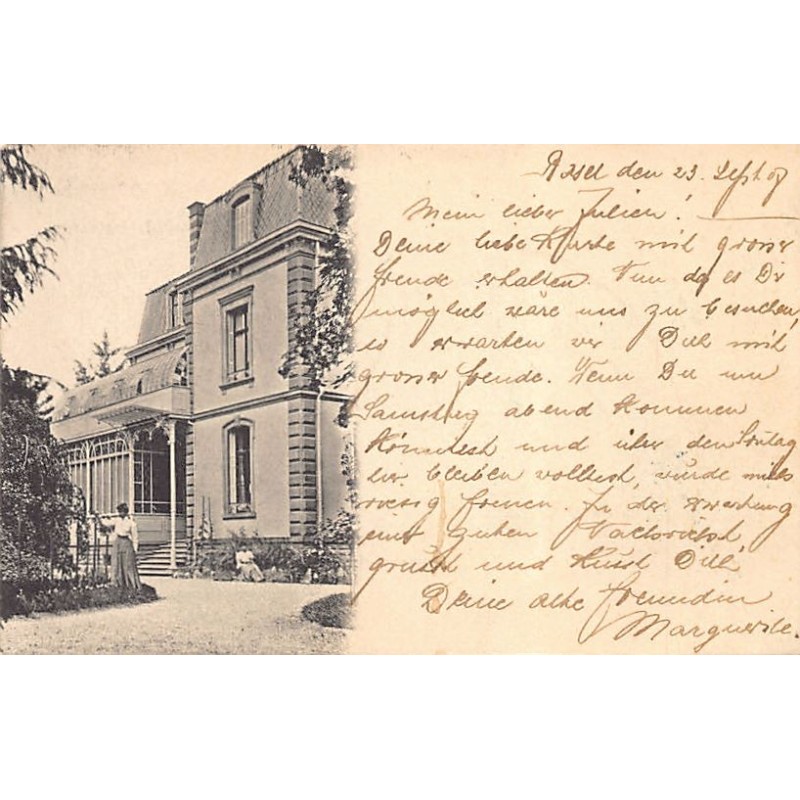 Basel den 23. Sept 07
Mein lieber Julien!
Deine liebe Karte mit grosser
freude erhalten. Nun da es Dir
möglich wäre uns zu besuchen,
so erwarten wir Dich mit
grosser freude. Wenn Du um
Samstag abend kommen
könntest und über den Sontag
hir bleiben volltest, würde mich
riesig freuen. In der erwartung
guten
grüsst und küsst Dich
Deine alte freundin
Marguerite.